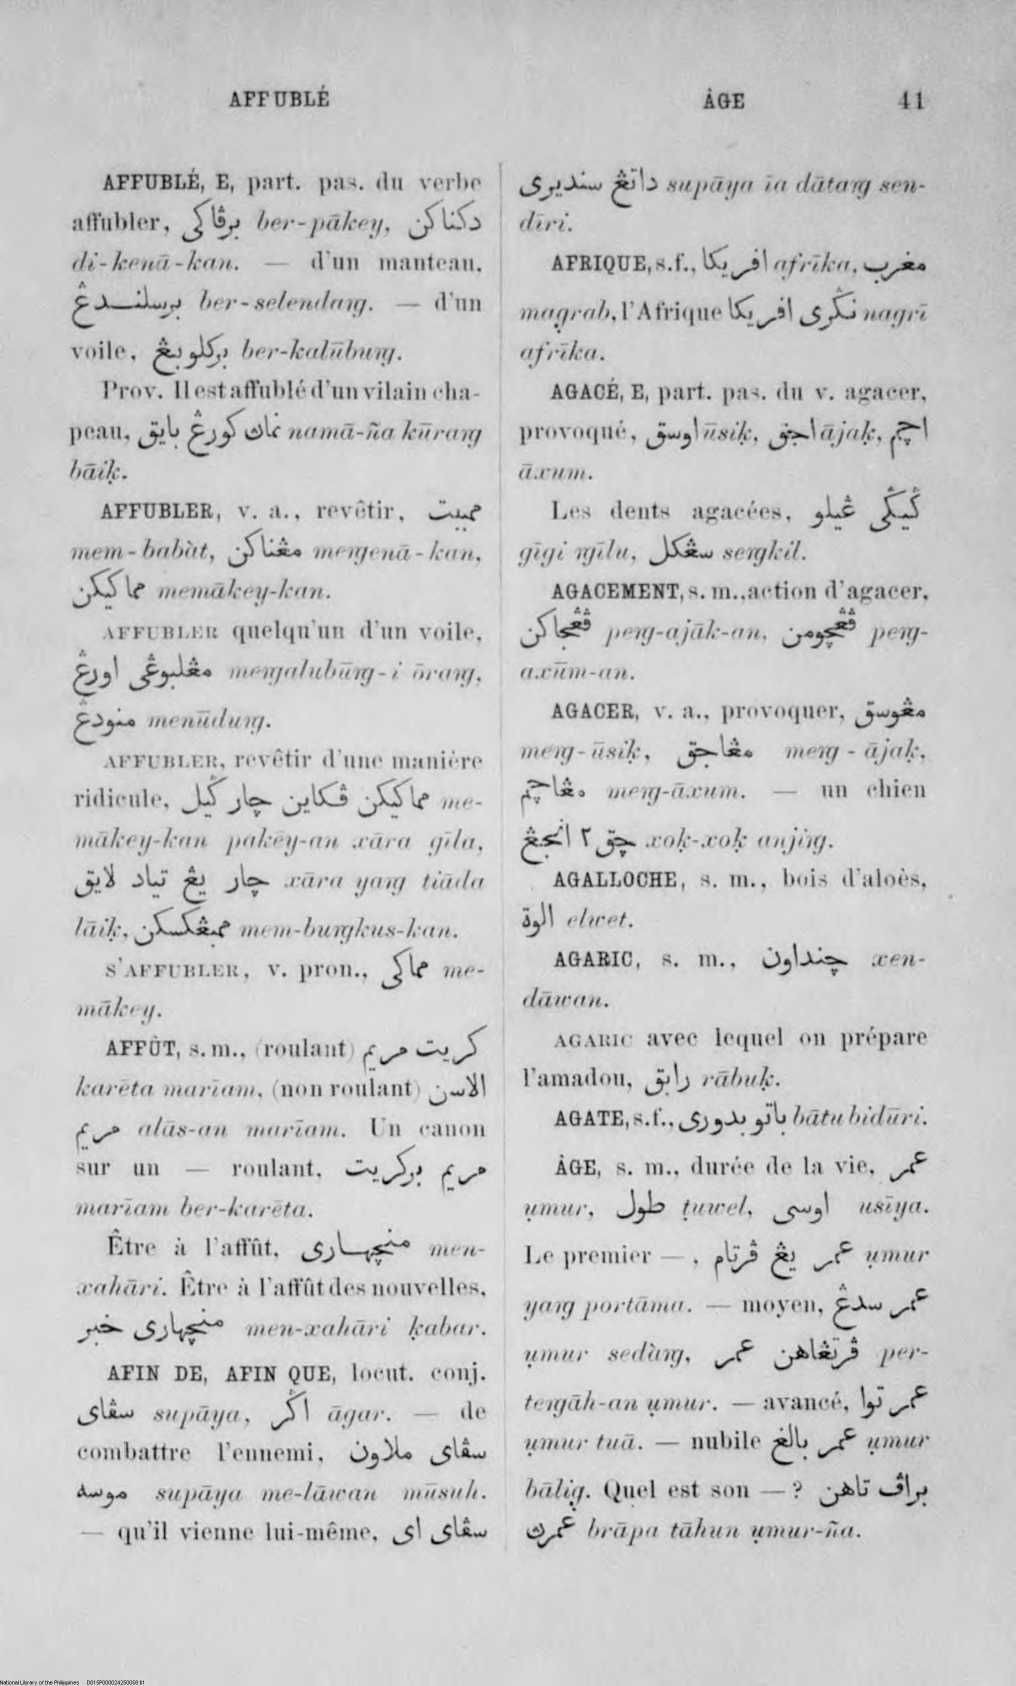 AFFUBLÉ
ÂGE 41
AFFUBLÉ, E, part. pas. du verbe
affubler, برڤاكى ber-pākey, دكناكن
di-kenā-kan. — d'un manteau,
برسلندڠ ber-selendaṃg. — d'un
voile, بركلوبڠ ber-kalūbuṃg.
Prov. Il est affublé d'un vilain cha-
peau, نماڽ كورڠ بايق namā-ña kūraṃg
bāiḳ.
AFFUBLER, v. a., revêtir, ممببت
mem-babàt, مڠناكن meṃgenā-kan,
مماكيكن memākey-kan.
AFFUBLER quelqu'un d'un voile,
مڠلبوڠى اورڠ meṃgalubūṃg-i ōraṃg,
منودڠ menūduṃg.
AFFUBLER, revêtir d'une manière
ridicule, مماكيكن ڤكاين چار ݢيل me-
mākey-kan pakēy-an xāra gīla,
چار يڠ تياد لايق xāra yaṃg tiāda
lāiḳ, ممبڠكسكن mem-buṃgkus-kan.
S'AFFUBLER, v. pron., مماكى me-
mākey.
AFFÛT, s. m., (roulant) كريت مريم
karēta marīam, (non roulant) الاسن
مريم alās-an marīam. Un canon
sur un — roulant, مريم بركريت
marīam ber-karēta.
Être à l'affût, منچهارى men-
xahāri. Être à l'affût des nouvelles,
منچهارى خبر men-xahāri ḳabar.
AFIN DE, AFIN QUE, locut. conj.
سڤاى supāya, اݢر āgar. — de
combattre l'ennemi, سڤاى ملاون
موسه supāya me-lāwan mūsuh.
— qu'il vienne lui-même, سڤاى اى
داتڠ سنديرى supāya īa dātaṃg sen-
dīri.
AFRIQUE, s. f., افريكا afrīka, مغرب
magrab, l'Afrique نݢرى افريكا nagrī
afrīka.
AGACÉ, E, part. pas. du v. agacer,
provoqué, اوسق ūsiḳ, اجق ājaḳ, اچم
āxum.
Les dents agacées, ݢيݢى ڠيلو
gīgi ṃgīlu, سڠكل seṃgkil.
AGACEMENT, s. m., action d'agacer,
ڤڠجاكن peṃg-ajāk-an, ڤڠچومن peṃg-
axūm-an.
AGACER, v. a., provoquer, مڠوسق
meṃg-ūsiḳ, مڠاجق meṃg-ājaḳ,
مڠاچم meṃg-āxum. — un chien
چق ٢ انجڠ xoḳ-xoḳ anjiṃg.
AGALLOCHE, s. m., bois d'aloès,
الوة elwet.
AGARIC, s. m., چنداون xen-
dāwan.
AGARIC avec lequel on prépare
l'amadou, رابق rābuḳ.
AGATE, s. f., باتو بدورى bātu bidūri.
ÂGE, s. m., durée de la vie, عمر
ụmur, طول ṭuwel, اوسى usīya.
Le premier —, عمر يڠ ڤرتام ụmur
yaṃg portāma. — moyen, عمر سدڠ
ụmur sedàṃg, ڤرتڠاهن عمر per-
teṃgāh-an ụmur. — avancé, عمر توا
ụmur tuā. — nubile عمر بالغ ụmur
bālig. Quel est son — ? براڤ تاهن
عمرڽ brāpa tāhun ụmur-ña.
National Library of the Philippines